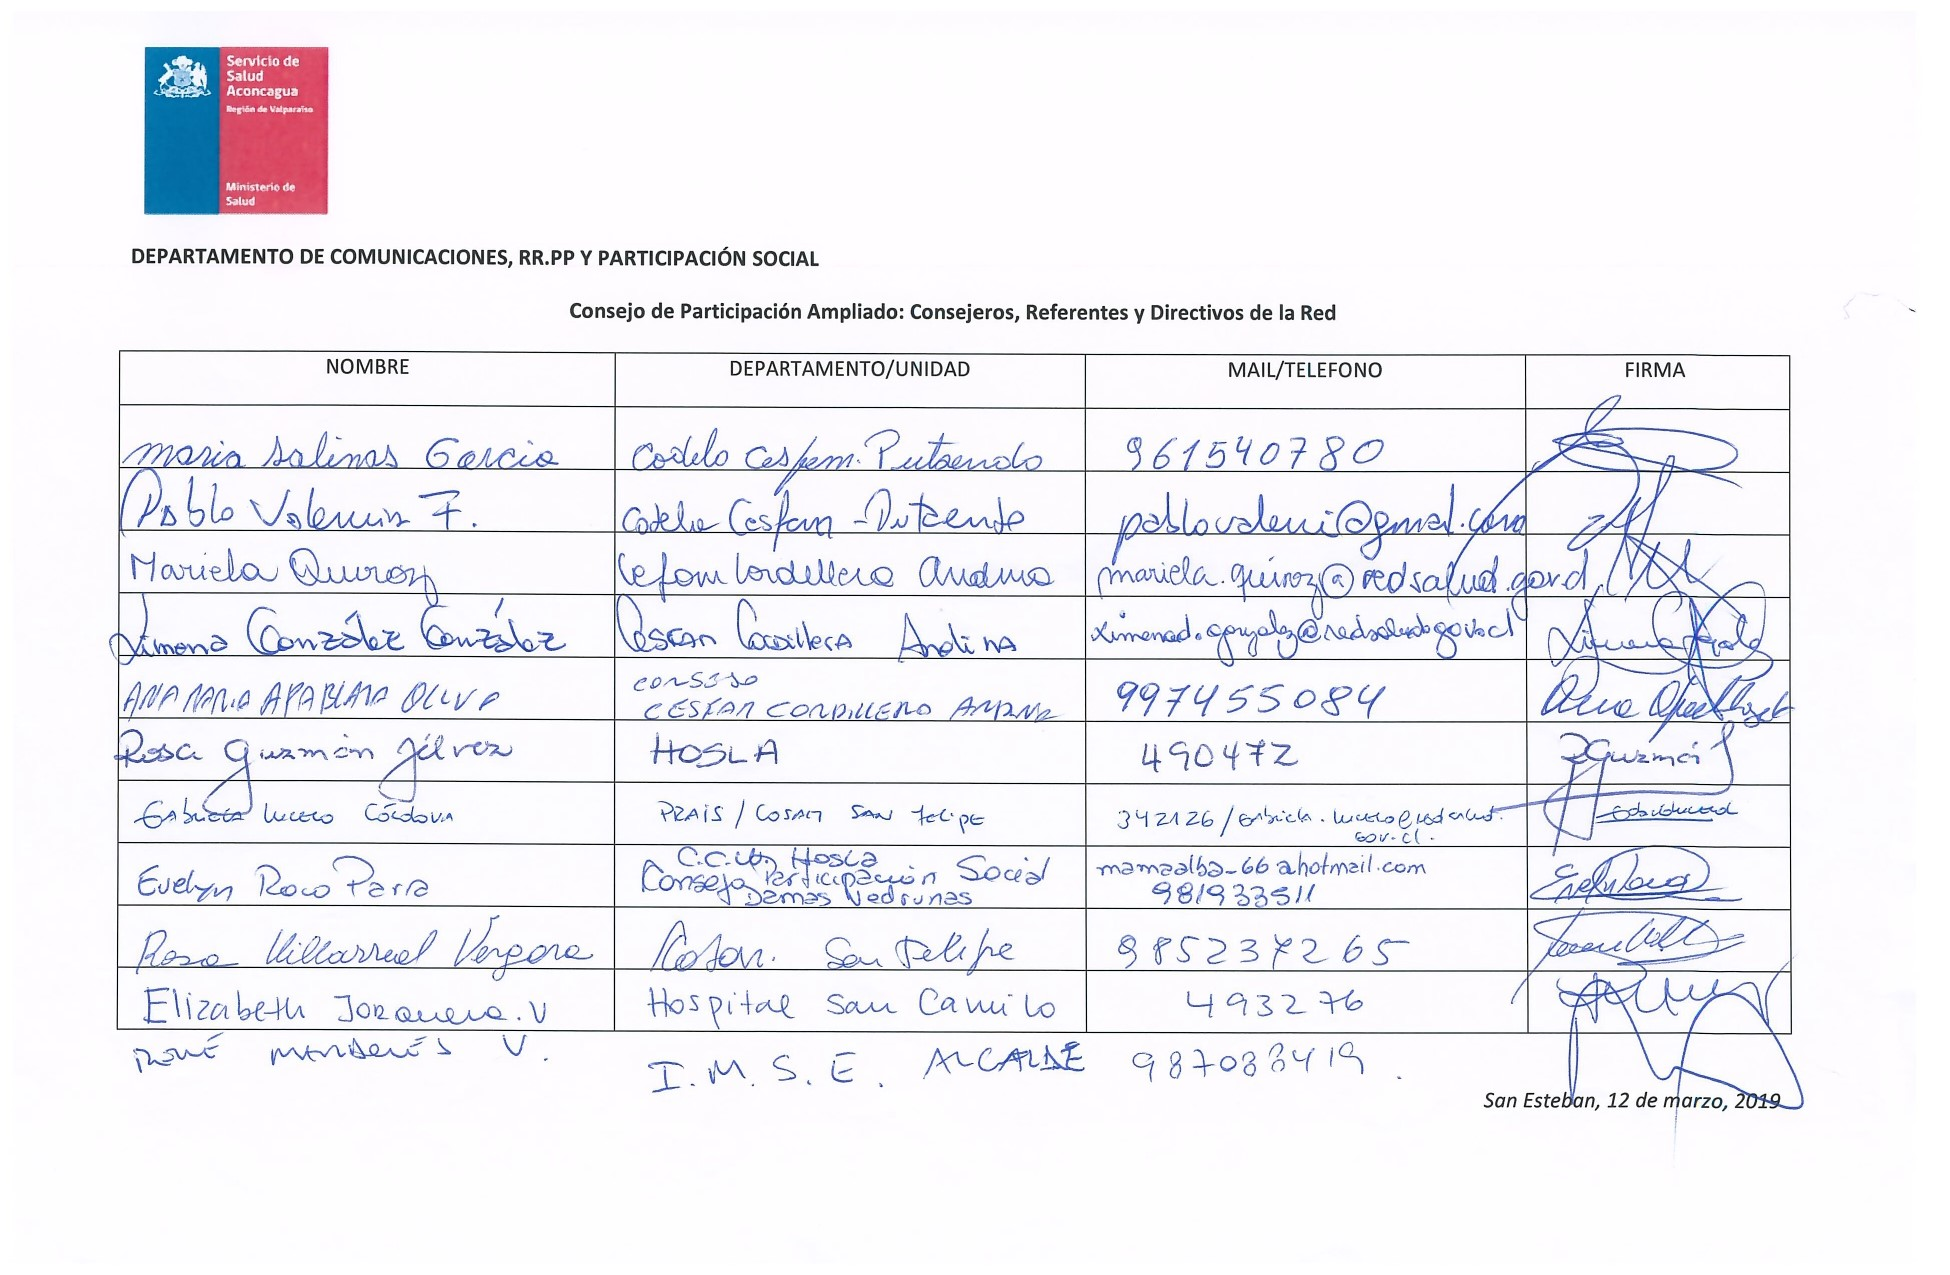 Servicio de
Salud
Aconcagua
Región de Valparaíso
Ministerio de
Salud
DEPARTAMENTO DE COMUNICACIONES, RR.PP Y PARTICIPACIÓN SOCIAL
Consejo de Participación Ampliado: Consejeros, Referentes y Directivos de la Red
NOMBRE DEPARTAMENTO/UNIDAD MAIL/TELEFONO FIRMA
Maria Salinas Garcia Codelo Cesfam. Putaendo 961540780
Pablo Valencia F. Codelo Cesfam - Putaendo
Mariela Quiroz Cefam Cordillera Andina mariela.quiroz@redsalud.gov.cl
Ximena González González Cesfam Cordillera Andina ximenad.gonzalez@redsalud.gov.cl
ANA MARIA APABLAZA OLIVA CONSEJO CESFAM CORDILLERA ANDINA 997455084
Rosa Guzmán Gálvez HOSLA 490472 RGuzmán G
Gabriela Lucero Córdova PRAIS / COSAM SAN FELIPE 342126 / Gabriela.lucero@redsalud.
gov.cl.
Evelyn Roco Parra C.C.UU Hosla mamaalba-66@hotmail.com
Consejo Participación Social 981933511
Damas Vedrunas
Rosa Villarreal Vergara Cosam. San Felipe 985237265
Elizabeth Jorquera. V Hospital San Camilo 493276
RENÉ V. I.M.S.E. ALCALDE 987083419.
San Esteban, 12 de marzo, 2019